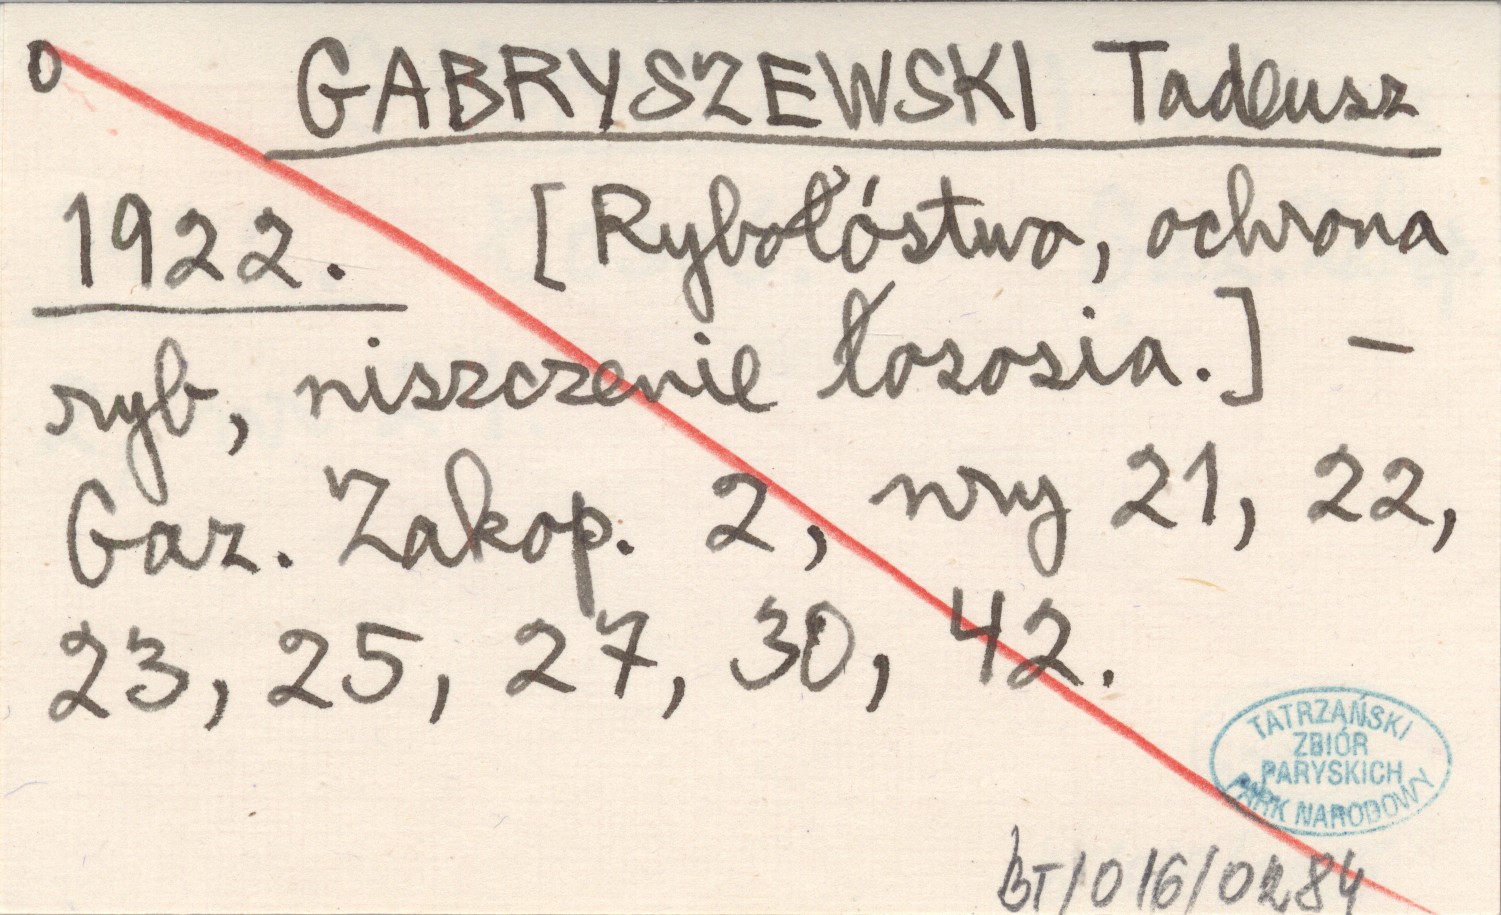 o GABRYSZEWSKI Tadeusz
1922. [Rybołóstwo, ochrona
ryb, niszczenie łososia.] –
Gaz. Zakop. 2, nry 21, 22,
23, 25, 27, 30, 42.
TATRZAŃSKI
ZBIÓR
PARYSKICH
PARK NARODOWY
BT/016/0284